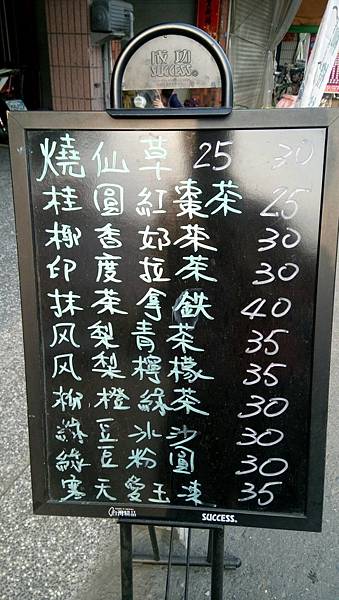 成功
SUCCESS
燒仙草 25 30
桂圓紅棗茶 25
椰香奶茶 30
印度拉茶 30
抹茶拿鉄 40
风梨青茶 35
风梨檸檬 35
柳橙綠茶 30
綠豆冰沙 30
綠豆粉圓 30
寒天愛玉凍 35
台灣精品 SUCCESS.